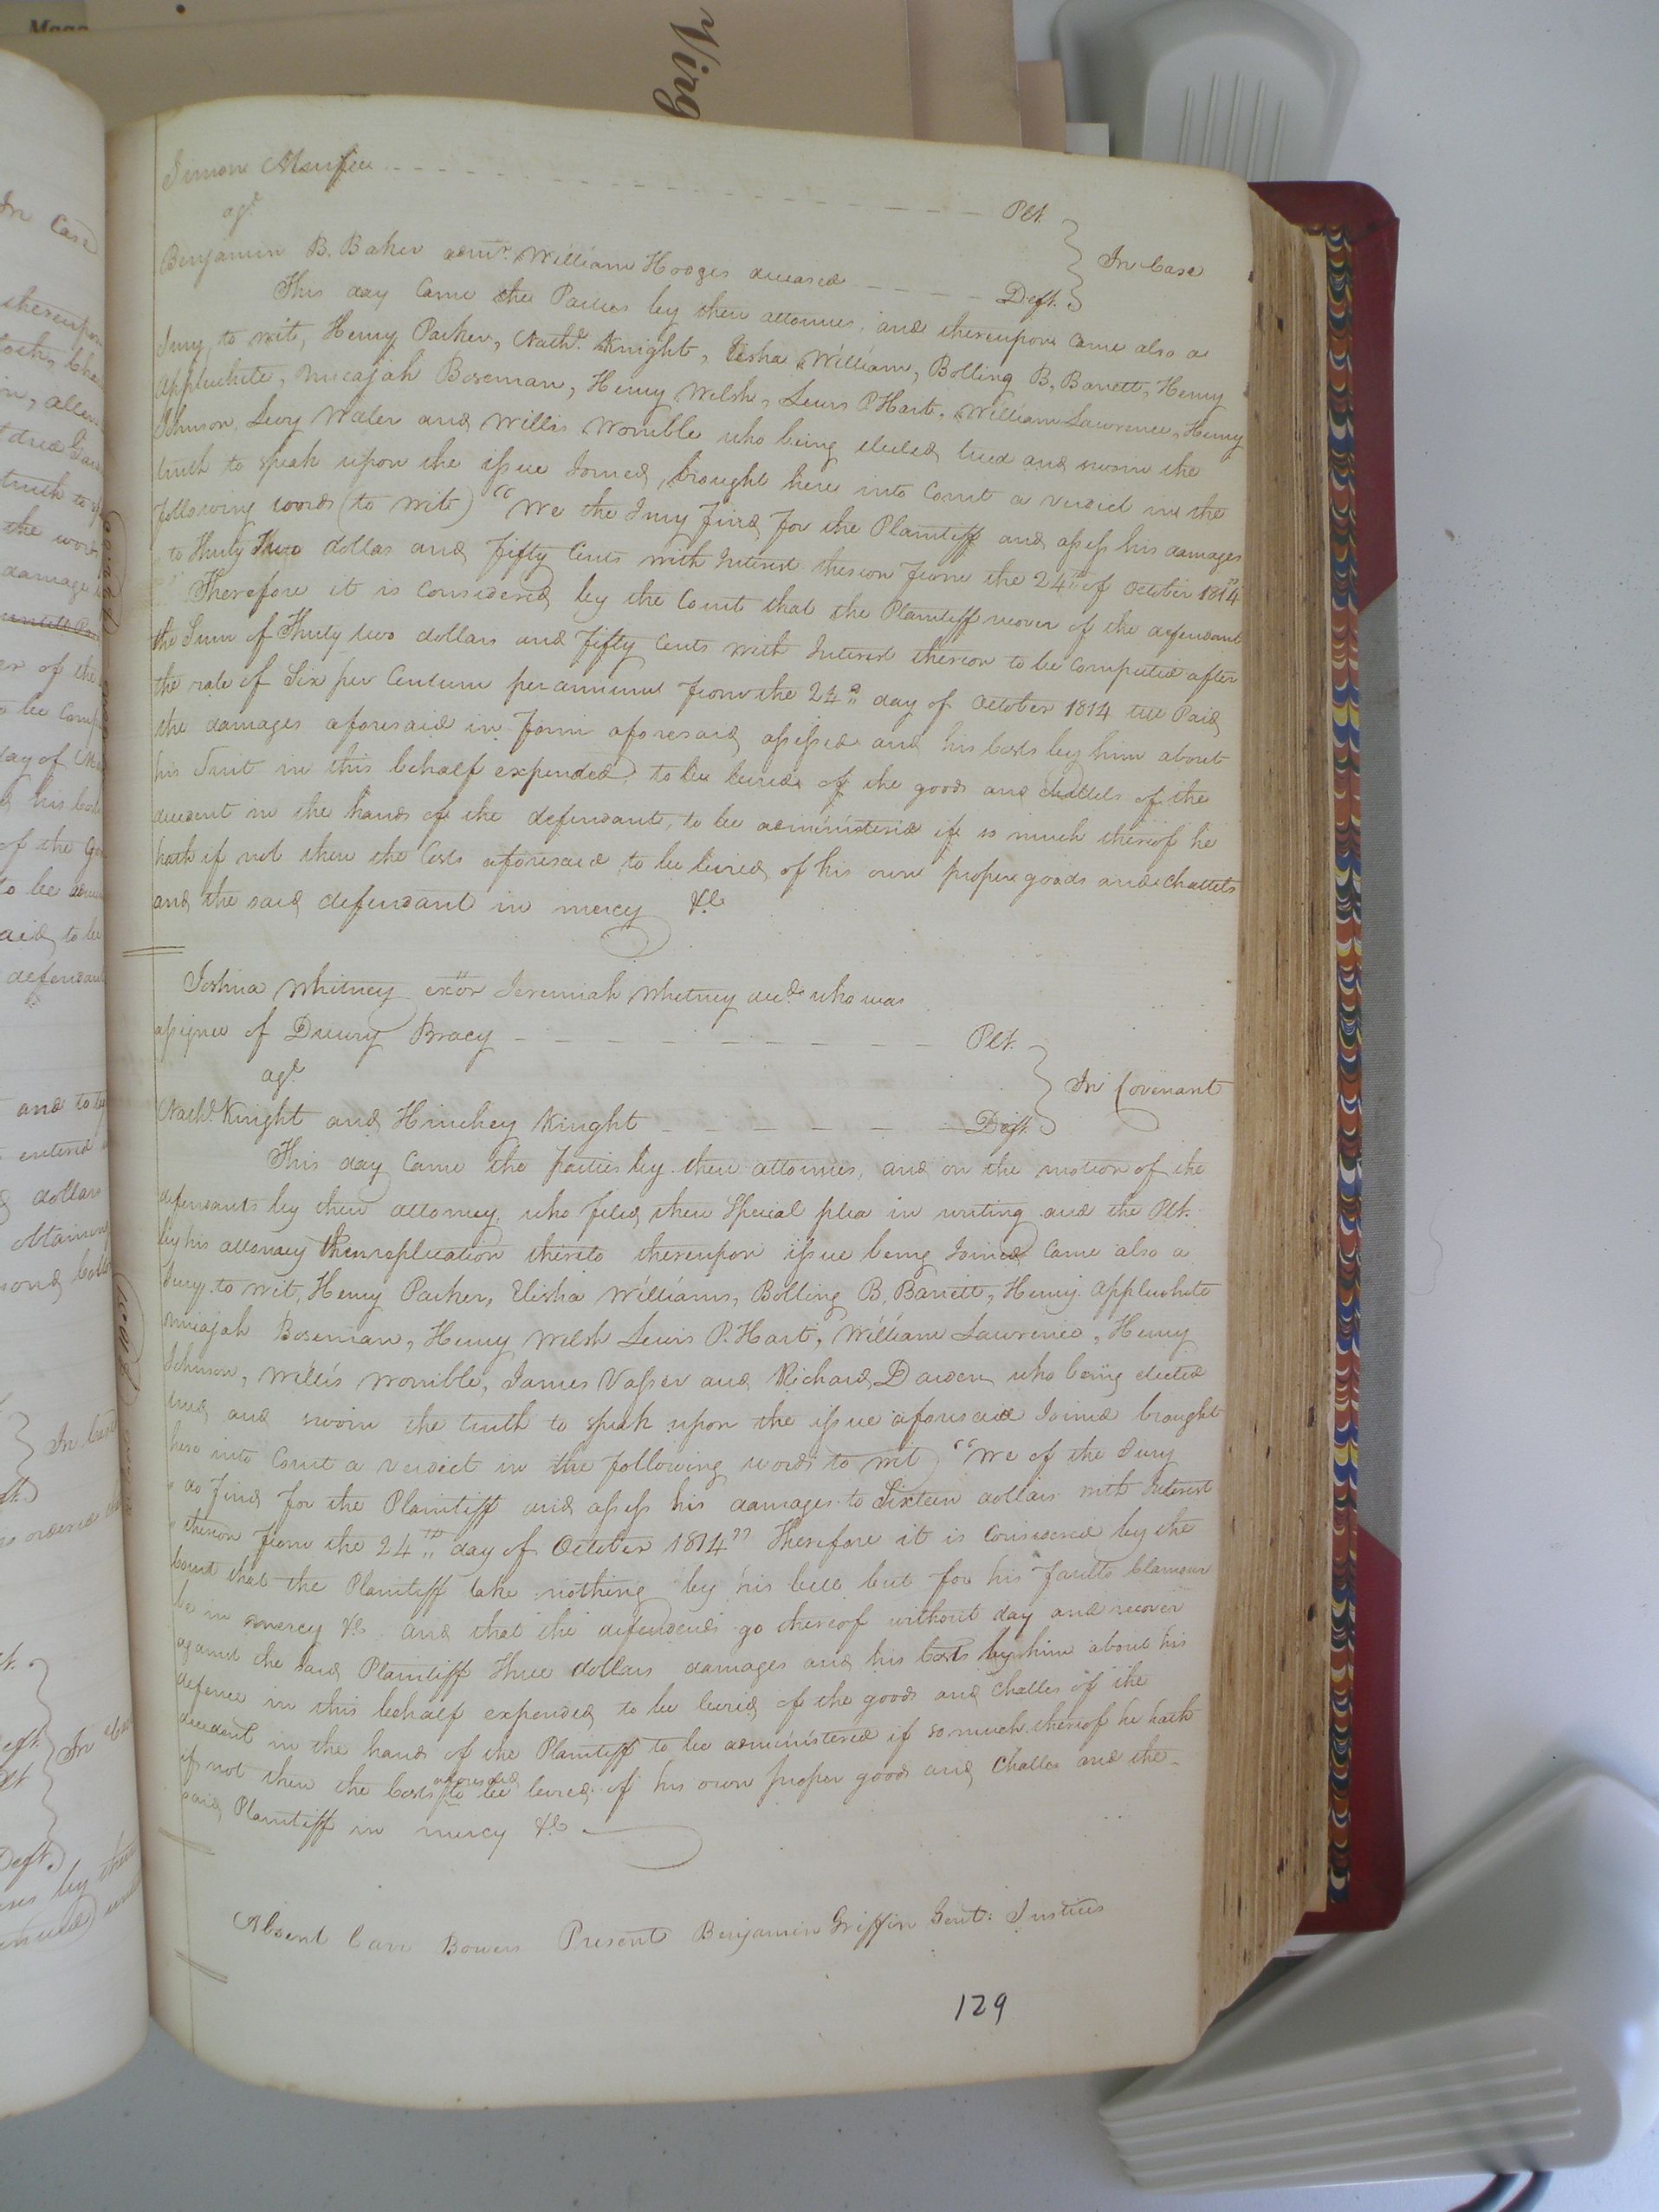 Virg
Simon Murfee Plt.
agt.
Benjamin B. Baker admr. William Hodges deceased Deft.
In Case
This day Came the Parties by their attornies, and thereupon Came also a
Jury, to wit, Henry Parker, Nathl. Knight, Elisha William, Bolling B. Barrett, Henry
Applewhite, Micajah Boseman, Henry Welsh, Lewis P. Hart, William Lawrence, Henry
Johnson, Levy Waler and Willis Womble who being elected tried and sworn the
truth to speak upon the issue Joined, brought here into Court a verdict in the
following words (to wit) "We the Jury find for the Plaintiff and assess his damages
to Thirty Two dollars and fifty Cents with Interest thereon from the 24th of October 1814"
Therefore it is Considered by the Court that the Plaintiff recover of the defendant
the Sum of Thirty two dollars and fifty Cents with Interest thereon to be Computed after
the rate of Six per Centum per annum from the 24th day of October 1814 till Paid
the damages aforesaid in form aforesaid assessed and his Costs by him about
his Suit in this behalf expended, to be levied of the goods and chattels of the
decedent in the hands of the defendant, to be administered if so much thereof he
hath if not then the Costs aforesaid to be levied of his own proper goods and Chattels
and the said defendant in mercy &c
Joshua Whitney exor Jeremiah Whitney decd. who was
assignee of Drury Bracy Plt.
agt.
In Covenant
Nathl. Knight and Hinchey Knight Deft.
This day Came the parties by their attornies, and on the motion of the
defendants by their attorney, who filed their Special plea in writing and the Plt.
by his attorney replication thereto thereupon issue being Joined Came also a
Jury to wit, Henry Parker, Elisha Williams, Bolling B. Barrett, Henry Applewhite
Micajah Boseman, Henry Welsh Lewis P. Hart, William Lawrence, Henry
Johnson, Willis Womble, James Vasser and Richard Darden who being elected
tried and sworn the truth to speak upon the issue aforesaid Joined brought
here into Court a verdict in the following words to wit) "We of the Jury
"do find for the Plaintiff and assess his damages to Sixteen dollars with Interest
"thereon from the 24th day of October 1814" Therefore it is Considered by the
Court that the Plaintiff take nothing by his bill but for his faults Clamour
be in mercy &c and that the defendends go thereof without day and recover
against the said Plaintiff Three dollars damages and his Costs by him about his
defence in this behalf expended to be levied of the goods and Chattes of the
decedent in the hands of the Plaintiff to be administered if so much thereof he hath
if not then the Costs aforesaid to be levied of his own proper goods and Chattes and the
said Plaintiff in mercy &c
Absent Carr Bowers Present Benjamin Griffin Gent: Justices
129